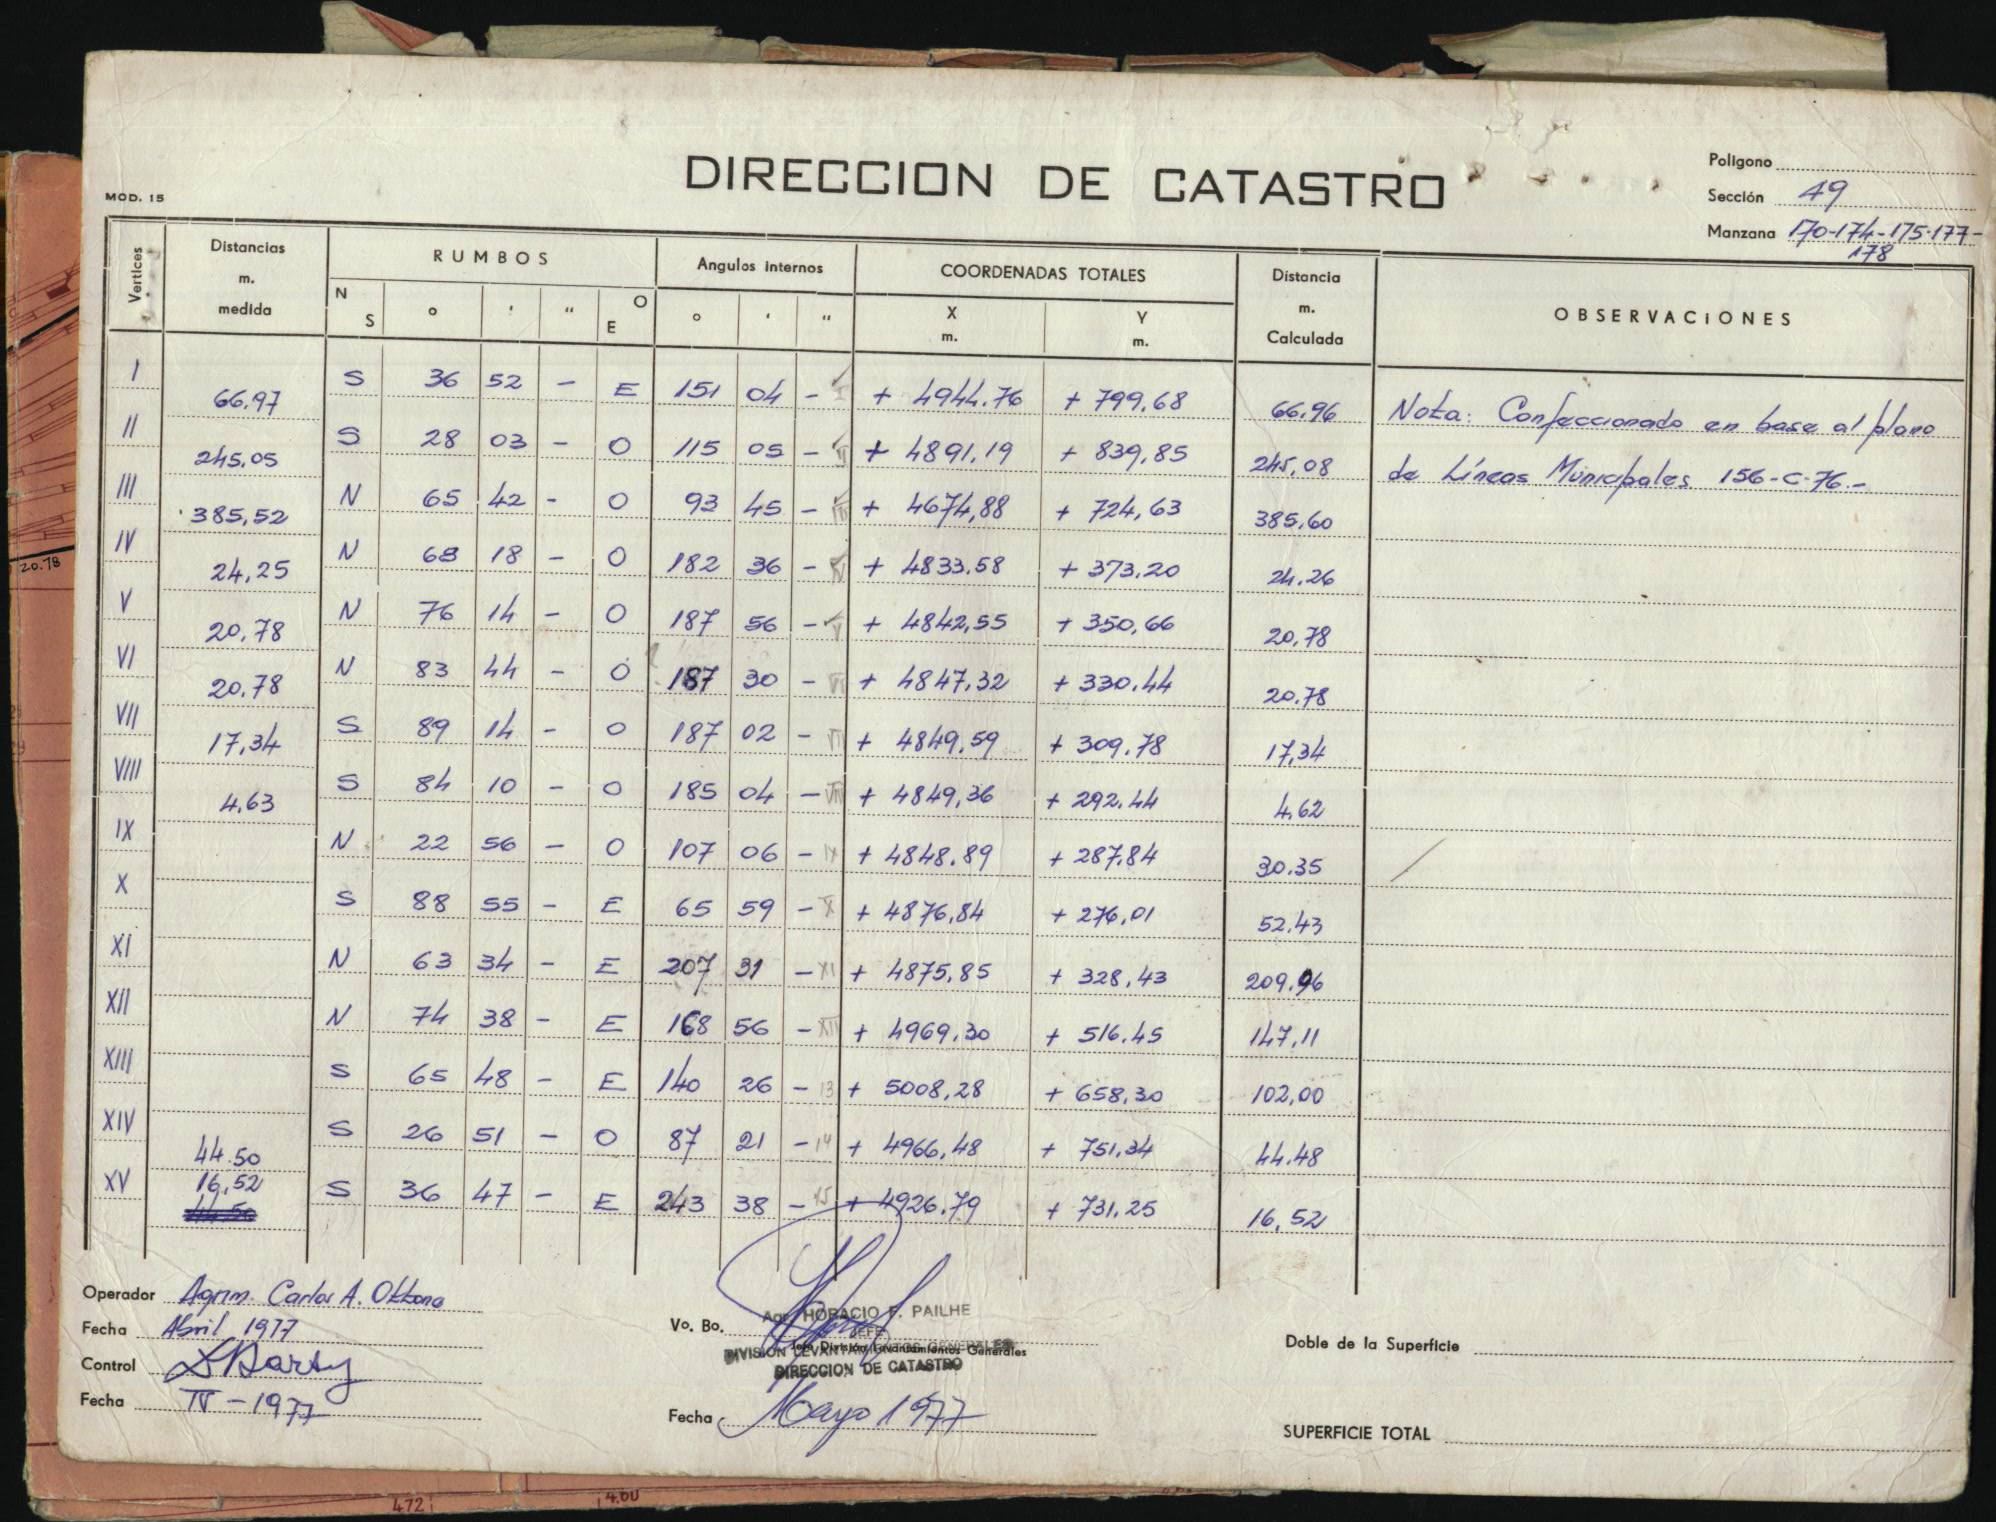 DIRECCION DE CATASTRO
MOD. 15
Poligono
Sección 49
Manzana 170-174-175-177-
178
Vertices
Distancias m. medida
RUMBOS
N S ° ' " O E
Angulos internos
° ' "
COORDENADAS TOTALES
X m. Y m.
Distancia m. Calculada
OBSERVACIONES
I 66.97 S 36 52 - E 151 04 - I + 4944.76 + 799.68 66.96
II 245.05 S 28 03 - O 115 05 - II + 4891,19 + 839,85 245,08
III 385,52 N 65 42 - O 93 45 - III + 4674,88 + 724,63 385.60
IV 24,25 N 68 18 - O 182 36 - IV + 4833.58 + 373.20 24.26
V 20,78 N 76 14 - O 187 56 - V + 4842,55 + 350,66 20,78
VI 20,78 N 83 44 - O 187 30 - VI + 4847,32 + 330.44 20.78
VII 17,34 S 89 14 - O 187 02 - VII + 4849.59 + 309.78 17,34
VIII 4.63 S 84 10 - O 185 04 - VIII + 4849,36 + 292.44 4,62
IX N 22 56 - O 107 06 - IX + 4848.89 + 287,84 30.35
X S 88 55 - E 65 59 - X + 4876,84 + 276,01 52.43
XI N 63 34 - E 207 31 - XI + 4875,85 + 328,43 209.96
XII N 74 38 - E 168 56 - XII + 4969,30 + 516.45 147,11
XIII S 65 48 - E 140 26 - 13 + 5008,28 + 658,30 102,00
XIV 44.50 S 26 51 - O 87 21 - 14 + 4966,48 + 751,34 44.48
XV 16,52 S 36 47 - E 243 38 - 15 + 4926.79 + 731.25 16,52
Nota: Confeccionado en base al plano
de Líneas Municipales 156-C-76.-
Operador Agrim. Carlos A.
Fecha Abril 1977
Control
Fecha IV - 1977
Vo. Bo.
Agr. HORACIO F. PAILHE
JEFE
Jefe División Levantamientos Generales
DIVISION LEVANTAMIENTOS GENERALES
DIRECCION DE CATASTRO
Fecha Mayo 1977
Doble de la Superficie
SUPERFICIE TOTAL
20.78
472
4.60